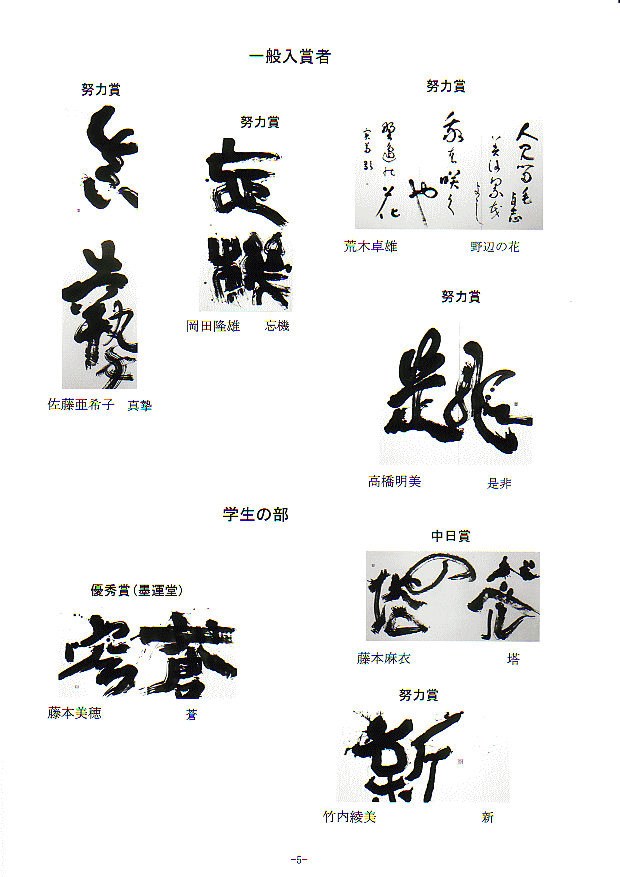 一般入賞者
努力賞
真摯
佐藤亜希子 真摯
努力賞
忘機
岡田隆雄 忘機
努力賞
荒木卓雄 野辺の花
努力賞
是非
高橋明美 是非
学生の部
優秀賞(墨運堂)
蒼
藤本美穂 蒼
中日賞
藤本麻衣 塔
努力賞
新
竹内綾美 新
-5-